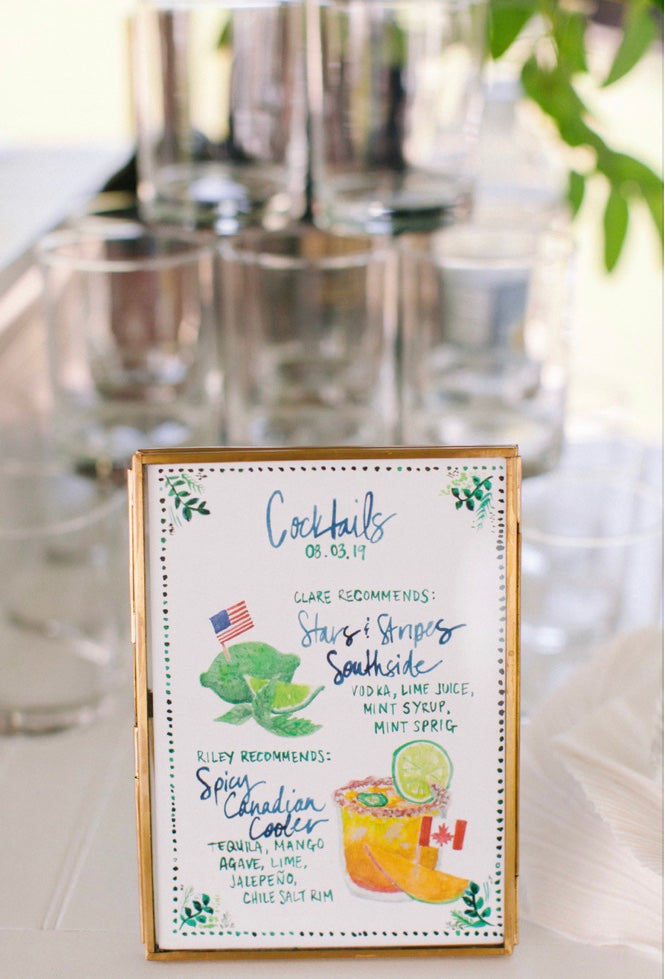 Cocktails
08.03.19
CLARE RECOMMENDS:
Stars & Stripes
Southside
VODKA, LIME JUICE,
MINT SYRUP,
MINT SPRIG
RILEY RECOMMENDS:
Spicy
Canadian
Cooler
TEQUILA, MANGO
AGAVE, LIME,
JALEPEÑO,
CHILE SALT RIM